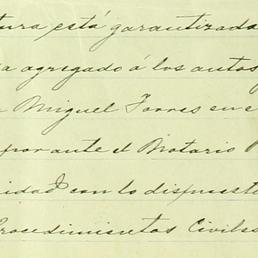 tura está garantizada
a agregado á los autos
Miguel Torres en e
por ante el Notario
idad con lo dispuest
Procedimientos Civiles